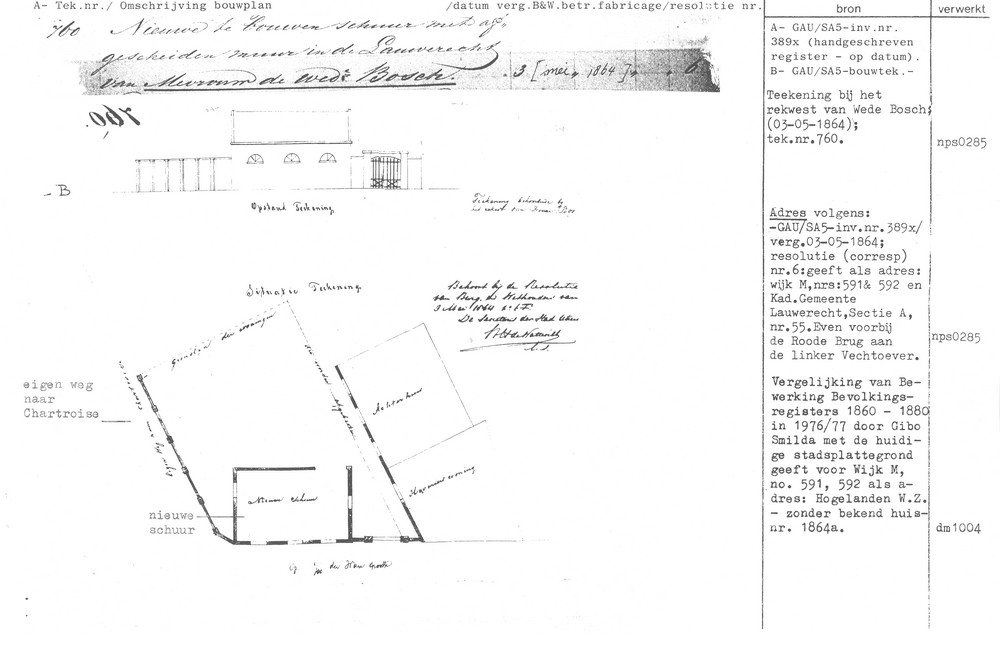 A- Tek.nr./ Omschrijving bouwplan /datum verg.B&W.betr.fabricage/resolutie nr. bron verwerkt
760 Nieuwe te bouwen schuur met af=
gescheiden muur in de Lauwerecht
van Mevrouw de Wede Bosch. 3 [mei, 1864] 6
760.
B
Opstand Teekening.
Teekening behoorende bij
het rekest van
Situatie Teekening.
Behoort bij de Resolutie
van Burg. & Wethouders van
3 Mei 1864
De Secretaris der Stad Utrecht
eigen weg
naar
Chartroise
Achterhuis
Nieuwe schuur
nieuwe
schuur
A- GAU/SA5-inv.nr.
389x (handgeschreven
register - op datum).
B- GAU/SA5-bouwtek.-
Teekening bij het
rekwest van Wede Bosch;
(03-05-1864);
tek.nr.760. nps0285
Adres volgens:
-GAU/SA5-inv.nr.389x/
verg.03-05-1864;
resolutie (corresp)
nr.6:geeft als adres:
wijk M,nrs:591& 592 en
Kad.Gemeente
Lauwerecht,Sectie A,
nr.55.Even voorbij
de Roode Brug aan nps0285
de linker Vechtoever.
Vergelijking van Be-
werking Bevolkings-
registers 1860 - 1880
in 1976/77 door Gibo
Smilda met de huidi-
ge stadsplattegrond
geeft voor Wijk M,
no. 591, 592 als a-
dres: Hogelanden W.Z.
- zonder bekend huis-
nr. 1864a. dm1004